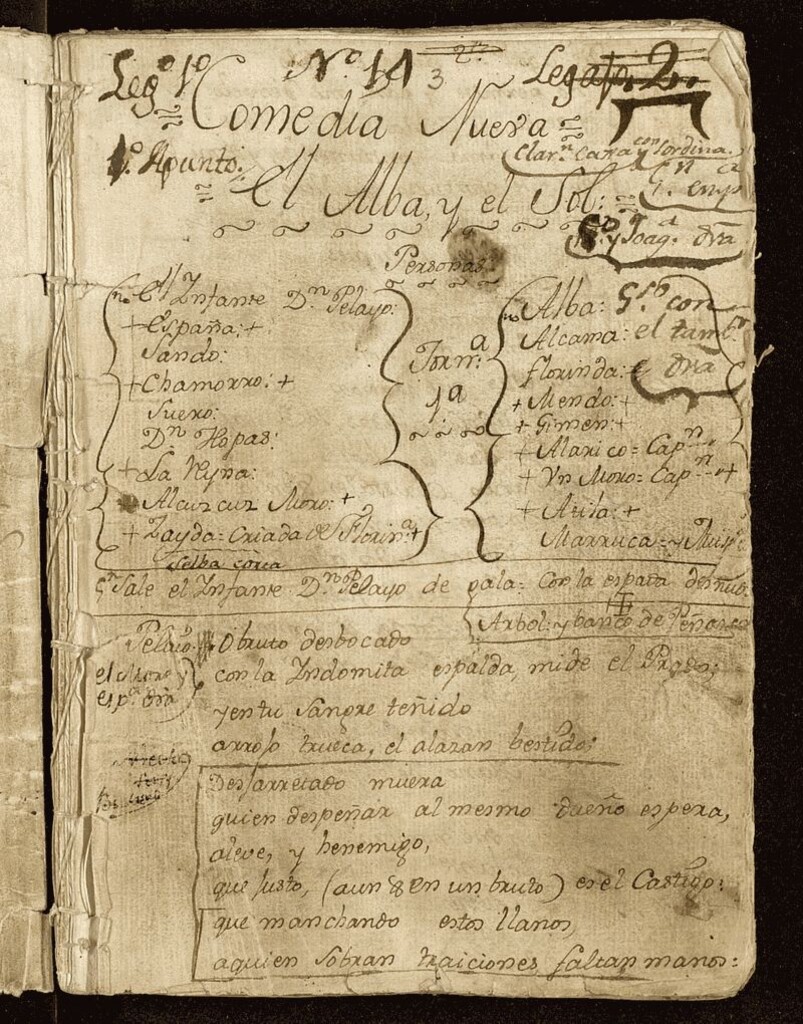 Leg.º 1º Nº 14 3 Legajo 2.
Comedia Nueva=
1º Apunto.
Clar.n Caxa con sordina.
El Alba, y el Sol:
y Joaq.a dra
Personas.
El Infante D.n Pelayo:
+España:+
Sando:
+Chamorro:+
Suero:
D.n Hopas:
+La Reyna:
Alcuzcuz Moro:+
+Zayda=Criada de Florin.a+
Jorn.a
1ª
Alba:
Alcama:
Florinda:
+Mendo:+
+Gimen:+
+Alarico=Cap.n
+Vn Moro=Cap.n+
+Atila:+
Marruca=
con
el tamb.r
dra
Selba corta
Sale el Infante D.n Pelayo de gala= Con la espada desnud.
Arbol: y banco de Peñasco
Pelayo. O bruto desbocado
el Moro y
esp.a dra
con la Indomita espalda, mide el Prado;
y en tu sangre teñido
arrojo trueca, el alazan bestido:
Desjarretado muera
quien despeñar al mesmo dueño espera,
aleve, y henemigo,
que justo, (aun en un bruto) es el Castigo:
que manchando estos llanos,
aquien sobran traiciones faltan manos: